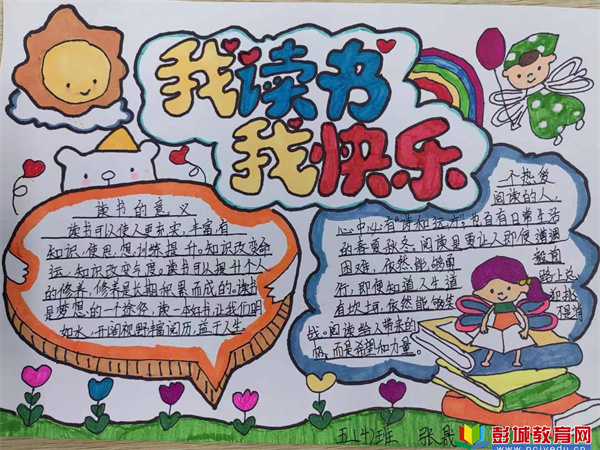 我读书
我快乐
读书的意义
读书可以使人更充实,丰富有
知识、使思想训练提升。知识改变命
运,知识改变与度。读书可以提升个人
的修养,修养是长期积累而成的。读书
是梦想的一个途径,读一本好书,让我们明
如水,开阔视野,增阅历,益于人生。
一个热爱
阅读的人,
心中必有"诗和远方",也自有日常生活
的春夏秋冬。阅读是更让人即便遭遇
困难,依然能够前
行,即便知道人生道路上
有坎坷,依然能够坚
战。阅读给人带来的
而是希望和力量。
五(4)班 张晟
彭城教育网